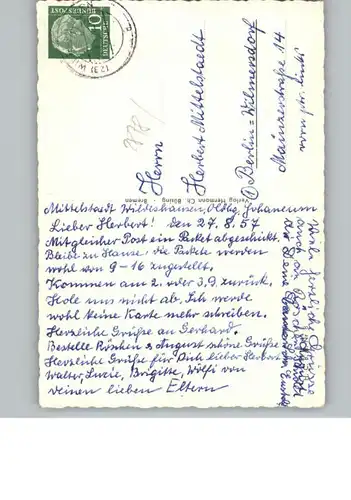 10
DEUTSCHE BUNDESPOST
Herrn
Herbert Mittelstaedt
Berlin=Wilmersdorf
Mainzerstraße 14
vorn ptr. links
Verlag Hermann Ch. Büsing - Bremen
Mittelstadt Wildeshausen, Oldbg. Johaneum
Lieber Herbert! den 27.8.57
Mit gleicher Post ein Packet abgeschickt.
Bleibe zu Hause, die Packete werden
wohl von 9-16 zugestellt.
Kommen am 2. oder 3.9. zurück.
Hole uns nicht ab. Ich werde
wohl keine Karte mehr schreiben.
Herzliche Grüße an Gerhard.
Bestelle Röschen & August schöne Grüße
Herzliche Grüße für Dich lieber Herbert
Walter, Luzie, Brigitte, Wölfi von
Deinen lieben Eltern
Viele herzliche Grüße